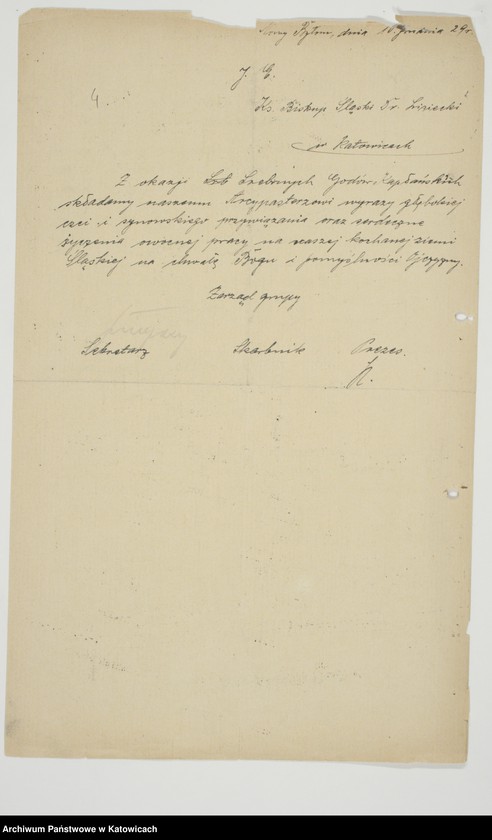 Nowy Bytom, dnia 10 Grudnia 29r.
J. E.
4.
Ks. Biskup Śląski Dr. Lisiecki
w Katowicach
Z okazji Srebrnych Godów Kapłańskich
składamy naszemu Arcypasterzowi wyrazy głębokiej
czci i synowskiego przywiązania oraz serdeczne
życzenia owocnej pracy na naszej kochanej ziemi
Śląskiej na chwałę Bogu i pomyślności Ojczyzny.
Zarząd grupy
Sekretarz Skarbnik Prezes.
K.
Archiwum Państwowe w Katowicach